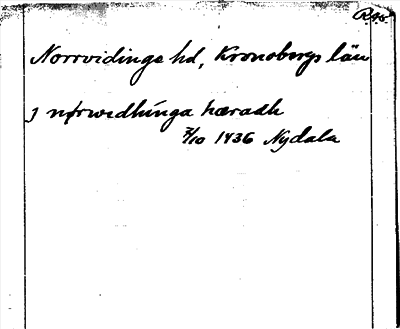 Norrvidinge hd, Kronobergs län
J nørwedhinga hæradh
7/10 1436 Nydala